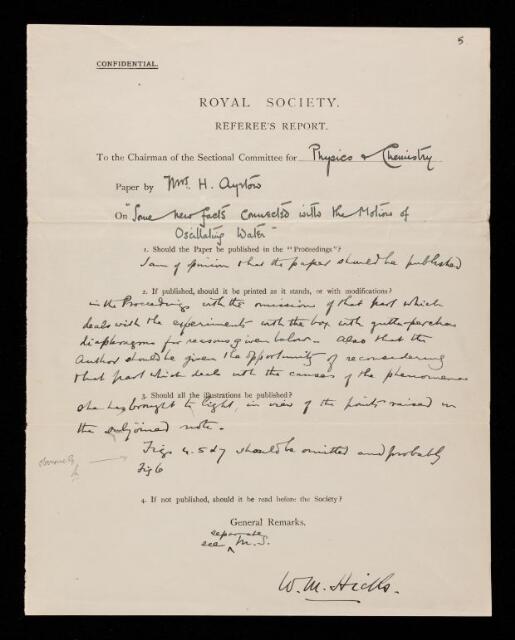 5
CONFIDENTIAL.
ROYAL SOCIETY.
REFEREE'S REPORT.
To the Chairman of the Sectional Committee for Physics & Chemistry
Paper by Mrs. H. Ayrton
On "Some new facts connected with the Motions of
Oscillating Water"
1. Should the Paper be published in the "Proceedings"?
I am of opinion that the paper should be published
2. If published, should it be printed as it stands, or with modifications?
in the Proceedings with the omission of that part which
deals with the experiments with the box with gutta-percha
diaphragms for reasons given below. Also that the
Author should be given the opportunity of reconsidering
that part which deals with the causes of the phenomena
3. Should all the illustrations be published?
she has brought to light, in view of the points raised in
the subjoined note.
Figs 4. 5 & 7 should be omitted and probably
Fig 6
4. If not published, should it be read before the Society?
General Remarks.
separate
see M.S.
W. M. Hicks.